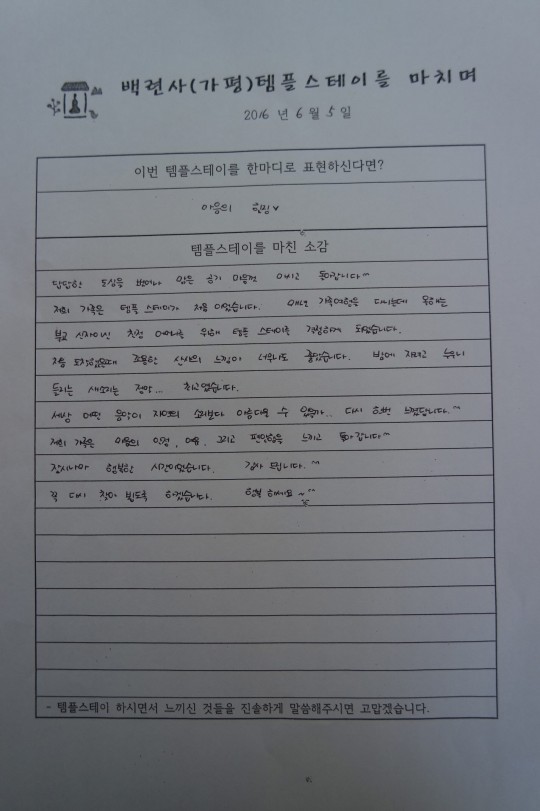 백련사(가평)템플스테이를 마치며
2016 년 6 월 5 일
이번 템플스테이를 한마디로 표현하신다면?
마음의 힐링♥
템플스테이를 마친 소감
답답한 도심을 벗어나 맑은 공기 마음껏 마시고 돌아갑니다^^
저희 가족은 템플 스테이가 처음 이었습니다. 매년 가족여행을 다니는데 올해는
불교 신자이신 친정 어머니를 위해 템플 스테이를 경험하게 되었습니다.
처음 도착했을때 조용한 산사의 느낌이 너무나도 좋았습니다. 방에 자려고 누우니
들리는 새소리는 정말... 최고였습니다.
세상 어떤 음악이 자연의 소리보다 아름다울 수 있을까.. 다시 한번 느꼈답니다.^^
저희 가족은 마음의 안정, 여유, 그리고 편안함을 느끼고 돌아 갑니다^^
잠시나마 행복한 시간이었습니다. 감사 드립니다.^^
꼭 다시 찾아 뵙도록 하겠습니다. 행복 하세요~^^
- 템플스테이 하시면서 느끼신 것들을 진솔하게 말씀해주시면 고맙겠습니다.